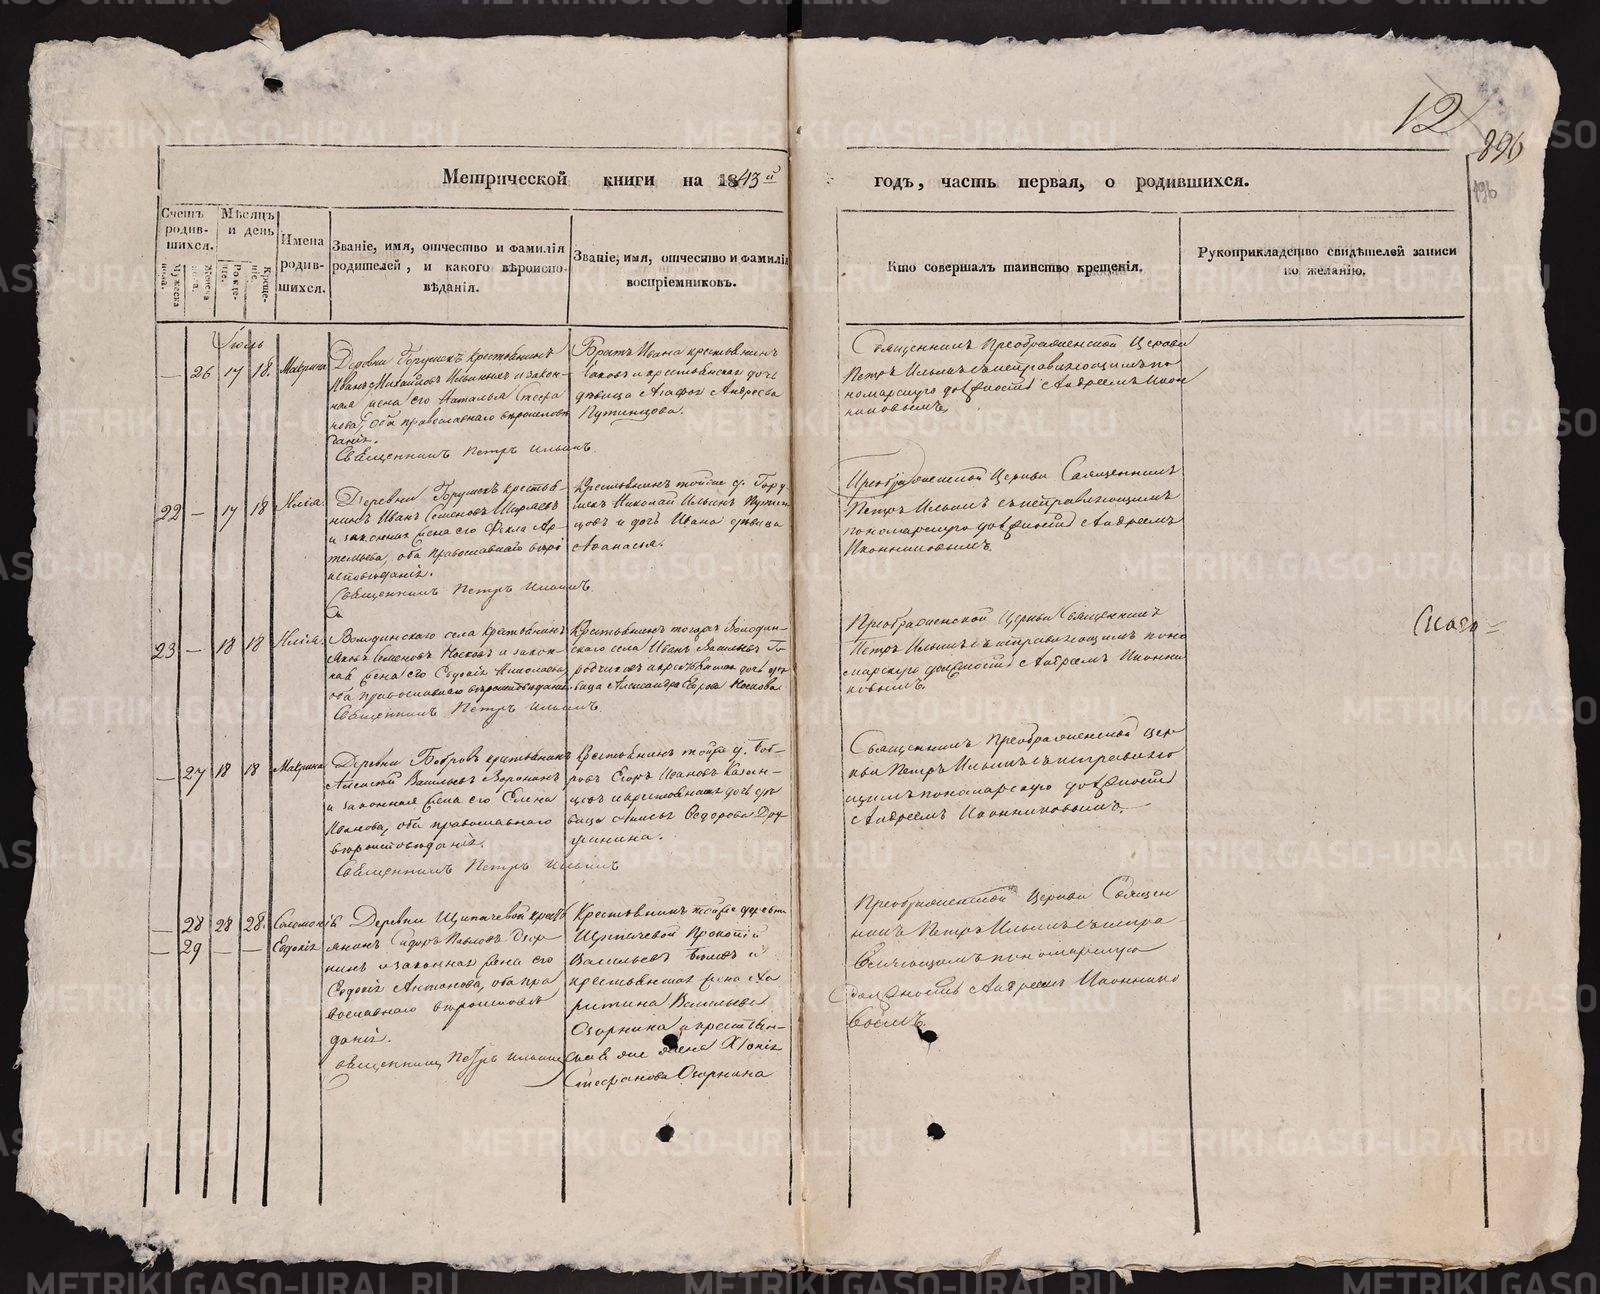 12
896
196
Метрической книги на 1843й
годъ, часть первая, о родившихся.
Счетъ родив-
шихся.
Мужеска пола.
Женска пола.
Мѣсяцъ
и день
Рожде-
нія.
Креще-
нія.
Имена
родив-
шихся.
Званіе, имя, отчество и фамилія
родителей, и какого вѣроиспо-
вѣданія.
Званіе, имя, отчество и фамилія
воспріемниковъ.
Кто совершалъ таинство крещенія.
Рукоприкладство свидѣтелей записи
по желанію.
Іюль
— 26 17 18. Маврина
Деревни крестьянинъ
Иванъ Михайловъ и закон-
ная жена его Наталья Стефа
нова, оба православнаго вѣроисповѣ
данія.
Священникъ Петръ Ильинъ
Братъ Ивана крестьянинъ
Іаковъ и крестьянская дочь
дѣвица Агафья Андреева
Путинцова.
Священникъ Преображенской Церкви
Петръ Ильинъ съ исправляющимъ по
номарскую должность Андреемъ Икон
никовымъ
22 — 17 18 Илія.
Деревни крестья-
нинъ Иванъ Семеновъ
и законная жена его Фекла Ар-
темьева, оба православнаго вѣро
исповѣданія.
Священникъ Петръ Ильинъ
Крестьянинъ тойже д.
Николай Ильинъ Путин
цовъ и дочь Ивана дѣвица
Афанасья.
Преображенской Церкви Священникъ
Петръ Ильинъ съ исправляющимъ
пономарскую должность Андреемъ
Иконниковымъ
23 — 18 18 Илія.
Володинскаго села крестьянинъ
Яковъ Семеновъ Носковъ и закон-
ная жена его Евдокія Николаева,
оба православнаго вѣроисповѣданія
Священникъ Петръ Ильинъ
Крестьянинъ тогоже Володин-
скаго села Иванъ Васильевъ Го
родчиковъ и крестьянская дочь дѣ
вица Александра Егорова Носкова
Преображенской Церкви Священникъ
Петръ Ильинъ съ исправляющимъ поно
марскую должность Андреемъ Иконни
ковымъ
— 27 18 18 Маврина
Деревни Бобровъ крестьянинъ
Алексей Васильевъ Воронинъ
и законная жена его Елена
Иванова, оба православнаго
вѣроисповѣданія.
Священникъ Петръ Ильинъ
Крестьянинъ тойже д. Боб-
ровъ Егоръ Ивановъ Казан-
цовъ и крестьянская дочь дѣ
вица Анисья Федорова Дру
жинина.
Священникъ Преображенской Цер
кви Петръ Ильинъ съ исправляю
щимъ пономарскую должность
Андреемъ Иконниковымъ.
— 28 28 28. Соломонія
— 29 — — Евдокія
Деревни Щипачевой кресть
янинъ Сидоръ Павловъ Озор
нинъ и законная жена его
Евдокія Антонова, оба пра
вославнаго вѣроисповѣ
данія.
Священникъ Петръ Ильинъ
Крестьянинъ тойже деревни
Щипачевой Прокопій
Васильевъ и
крестьянская жена Ха
ритина Васильева
Озорнина и крестьян-
ская же жена Хіонія
Стефанова Озорнина
Преображенской Церкви Священ
никъ Петръ Ильинъ съ испра
вляющимъ пономарскую
должность Андреемъ Иконнико
вымъ.
METRIKI.GASO-URAL.RU